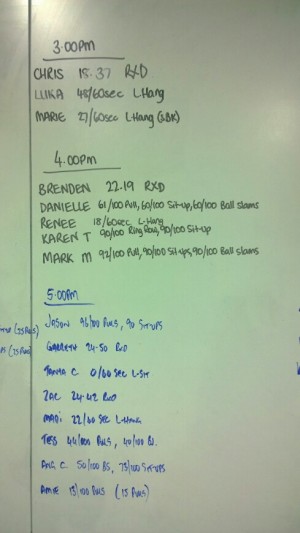 3.00pm
CHRIS 18.37 RXD
LUKA 48/60sec L-Hang
MARIE 27/60sec L-Hang
4.00pm
BRENDEN 22.19 RXD
DANIELLE 61/100 Pull, 60/100 Sit-up, 60/100 Ball Slams
RENEE 18/60sec L-Hang
KAREN T 90/100 Ring Row, 90/100 Sit-up
MARK M 92/100 Pull, 90/100 Sit-ups, 90/100 Ball Slams
5.00pm
JASON 96/100 PULLS, 90 SIT-UPS
GARRETH 24.50 RXD
TANYA C 0/60 SEC L-SIT
ZAC 24.42 RXD
MADI 22/60 SEC L-HANG
TESS 44/100 PULLS, 40/100 BS.
ANG C. 50/100 BS, 73/100 SIT-UPS
AMIE 13/100 PULLS (15 PULLS)